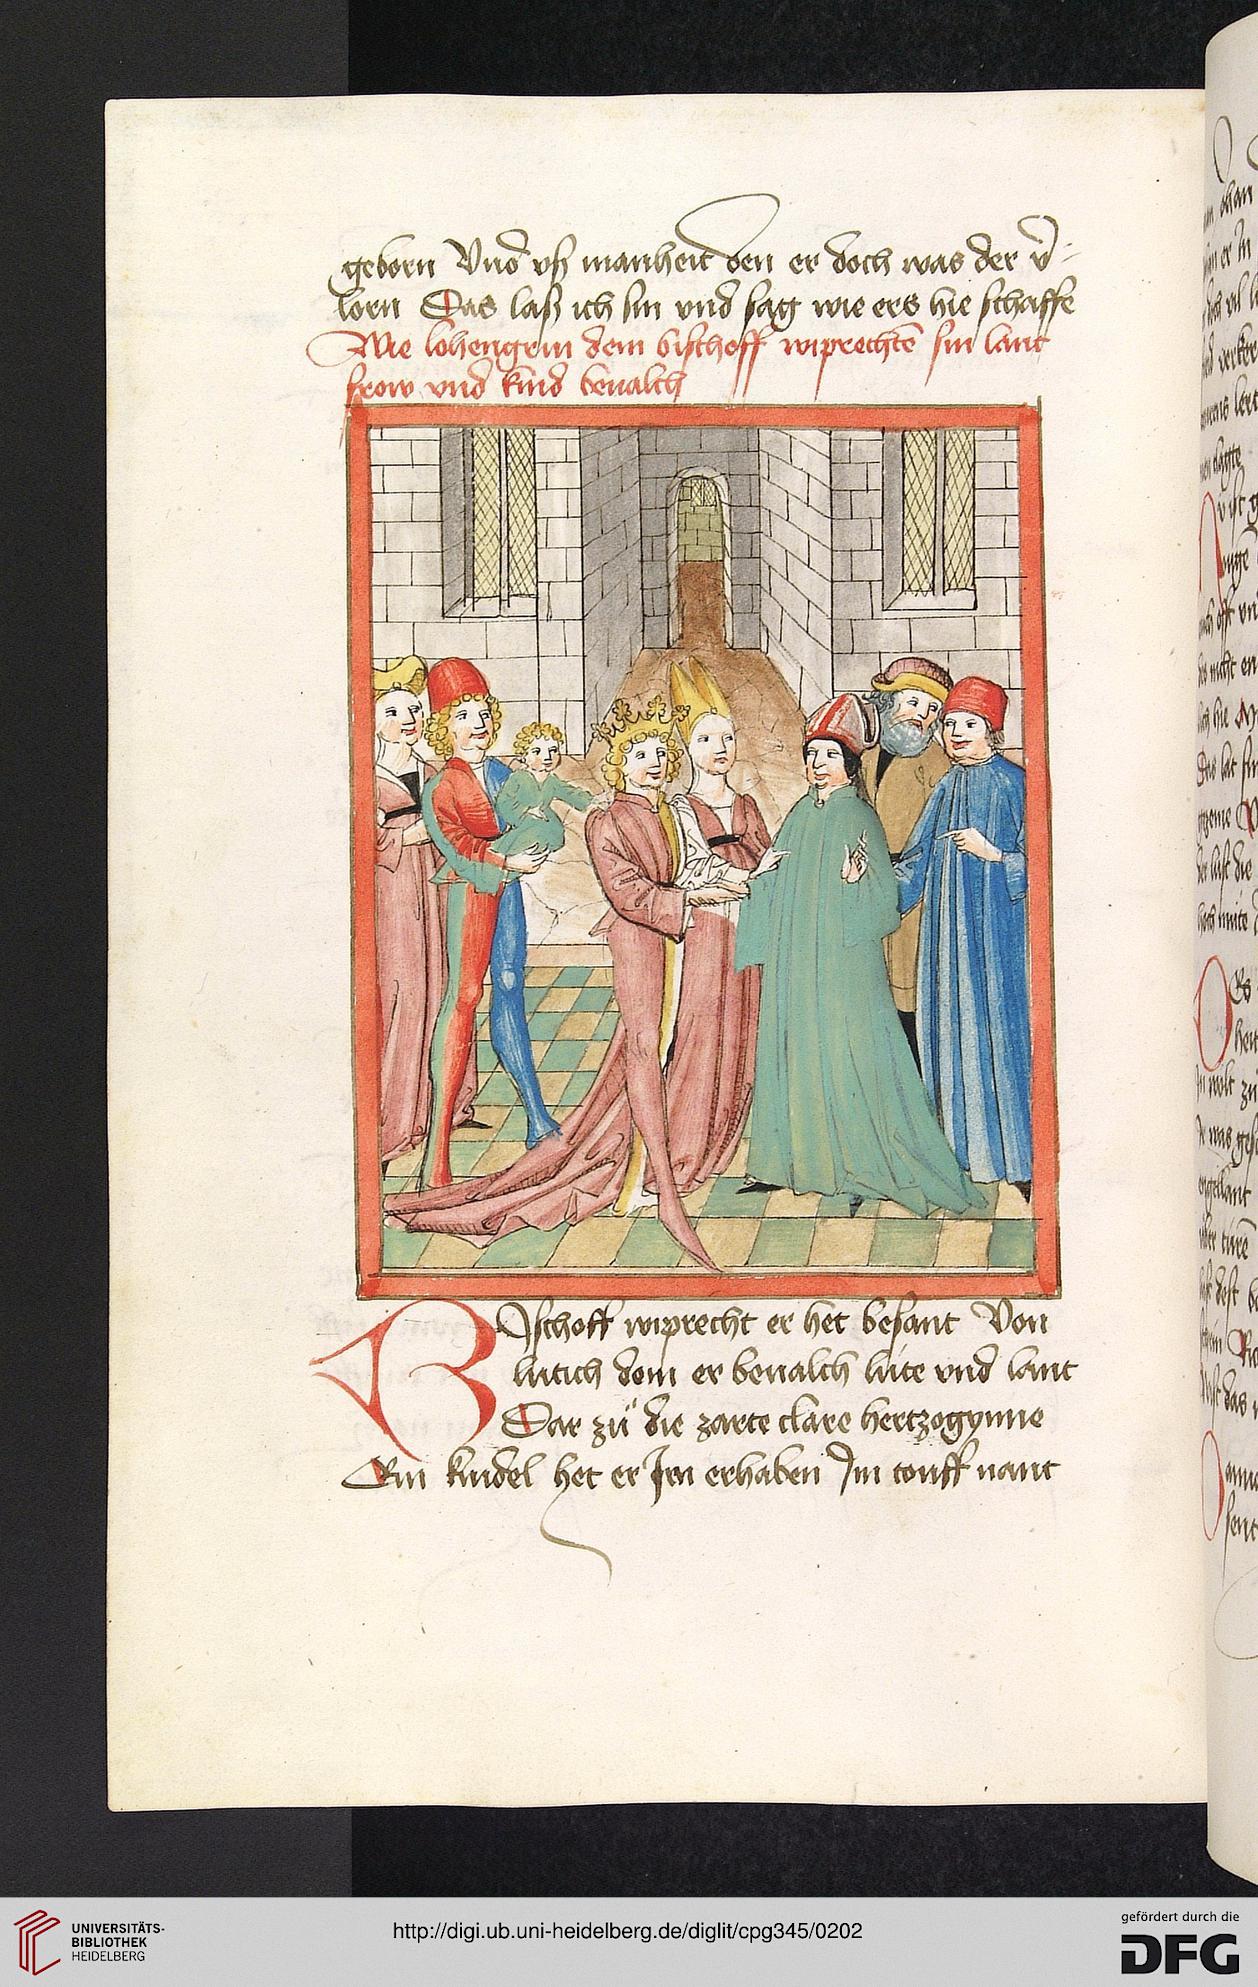 geborn Vnd vß manheit den er doch was der v̄-
lorn Das laß ich sin vnd sag wie ers hie schaffe
Wie lohengrin dem bischoff wiprechtē sin lant
frow vnd kind beualch
Bjschoff wiprecht er het besant Von
lutich dem er beualch lúte vnd lant
Dar zů die zarte clare hertzogynne
Ein kindel het er Jm erhaben Jm touff nant
UNIVERSITÄTS-
BIBLIOTHEK
HEIDELBERG
http://digi.ub.uni-heidelberg.de/diglit/cpg345/0202
gefördert durch die
DFG